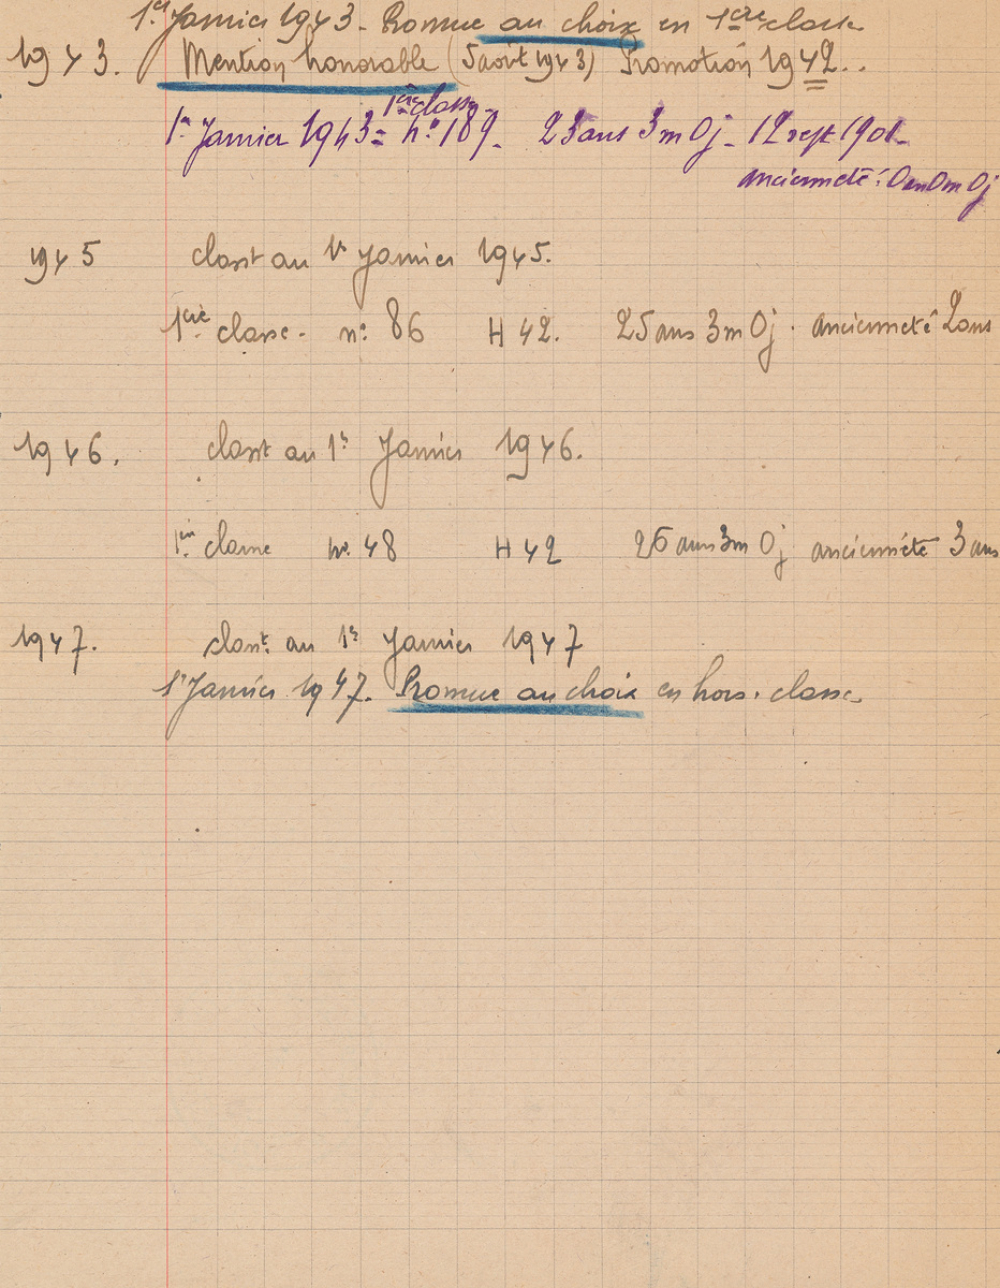 1er Janvier 1943 - Promue au choix en 1ère classe
1943. Mention honorable (5 août 1943) Promotion 1942..
1ère classe
1er Janvier 1943 = n° 189 - 23 ans 3m 0j - 12 sept 1901 -
ancienneté : 0an 0m 0j
1945 classt au 1er Janvier 1945.
1ère classe - n° 86 H 42. 25 ans 3m 0j. ancienneté 2ans
1946. classt au 1er Janvier 1946.
1ère classe n° 48 H 42 26 ans 3m 0j ancienneté 3 ans
1947. classt au 1er Janvier 1947
1er Janvier 1947. Promue au choix en hors-classe